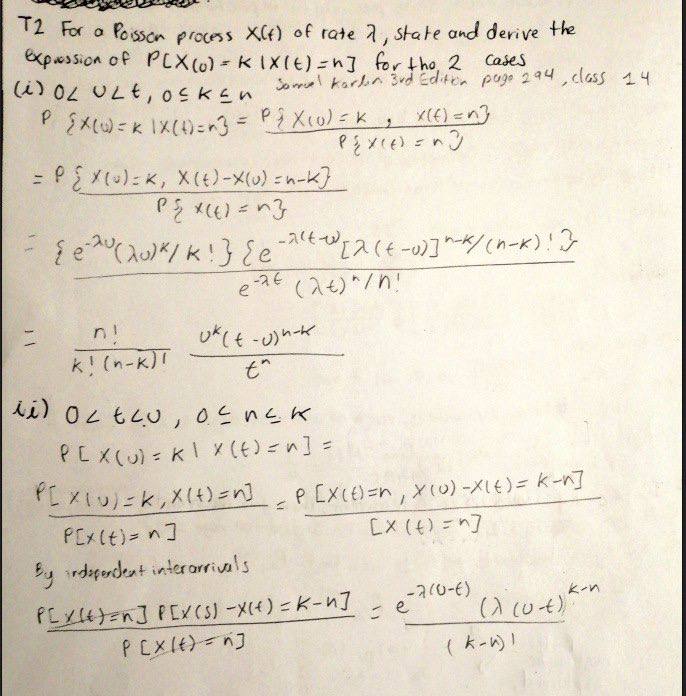 T2 For a Poisson process X(t) of rate λ, state and derive the
expression of P[X(u) = k | X(t) = n] for the 2 cases
(i) 0 < u < t, 0 ≤ k ≤ n Samuel Karlin 3rd Edition page 294, class 14
P {X(u) = k | X(t) = n} = P{X(u) = k , X(t) = n} / P{X(t) = n}
= P{X(u) = k, X(t) - X(u) = n-k} / P{X(t) = n}
= {e^{-λu}(λu)^k / k!} {e^{-λ(t-u)} [λ(t-u)]^{n-k} / (n-k)!} / e^{-λt} (λt)^n / n!
= n! / k!(n-k)! u^k (t-u)^{n-k} / t^n
ii) 0 < t < u, 0 ≤ n ≤ k
P[X(u) = k | X(t) = n] =
P[X(u) = k, X(t) = n] / P[X(t) = n] = P[X(t) = n, X(u) - X(t) = k-n] / [X(t) = n]
By independent interarrivals
P[X(t) = n] P[X(s) - X(t) = k-n] / P[X(t) = n] = e^{-λ(u-t)} (λ(u-t))^{k-n} / (k-n)!